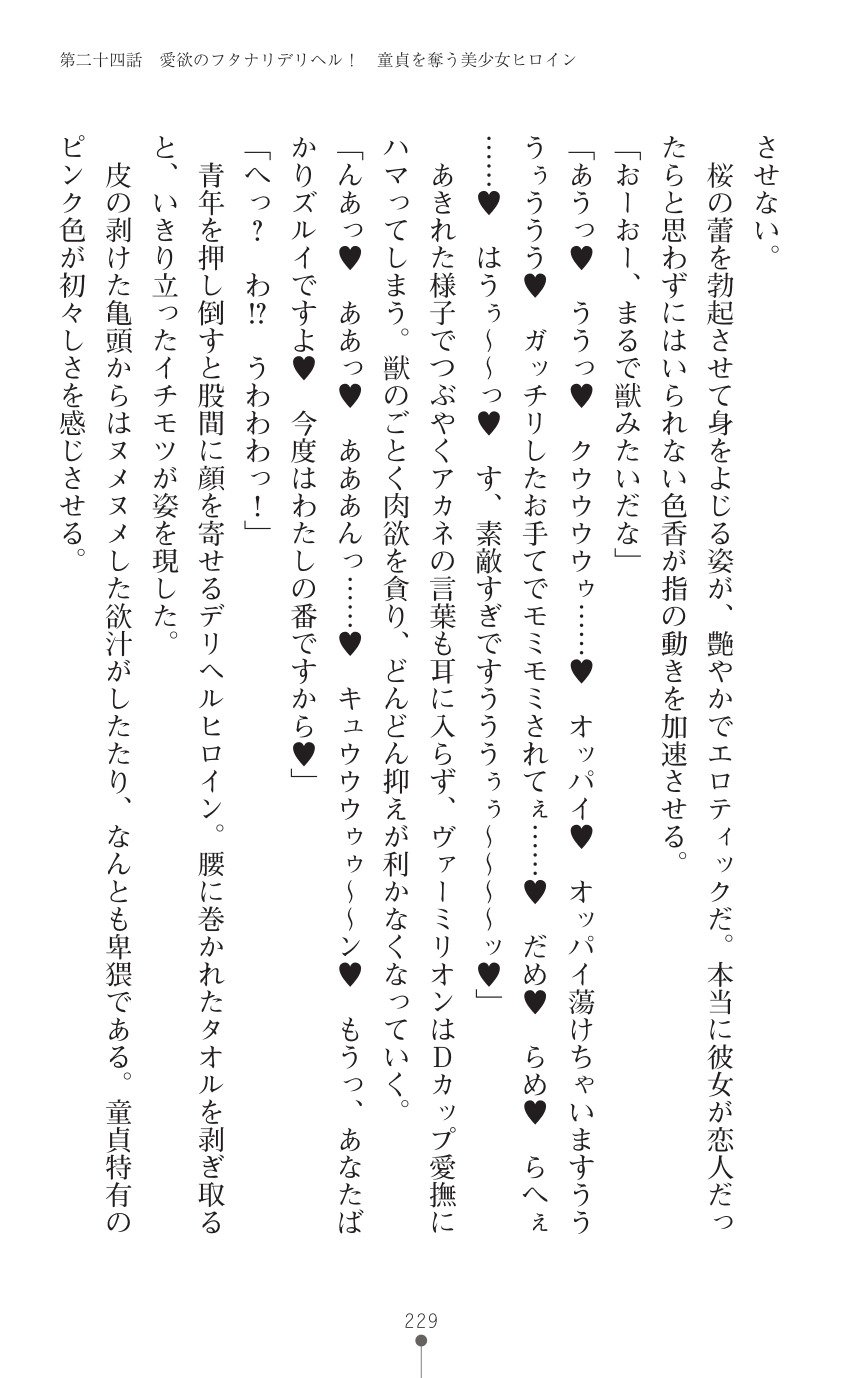 第二十四話　愛欲のフタナリデリヘル！　童貞を奪う美少女ヒロイン
させない。
　桜の蕾を勃起させて身をよじる姿が、艶やかでエロティックだ。本当に彼女が恋人だっ
たらと思わずにはいられない色香が指の動きを加速させる。
「おーおー、まるで獣みたいだな」
「あうっ♥　ううっ♥　クウウウウゥ……♥　オッパイ♥　オッパイ蕩けちゃいますうう
うぅううう♥　ガッチリしたお手てでモミモミされてぇ……♥　だめ♥　らめ♥　らへぇ
……♥　はうぅ～～っ♥　す、素敵すぎですうううぅぅ～～～～ッ♥」
　あきれた様子でつぶやくアカネの言葉も耳に入らず、ヴァーミリオンはDカップ愛撫に
ハマってしまう。獣のごとく肉欲を貪り、どんどん抑えが利かなくなっていく。
「んあっ♥　ああっ♥　あああんっ……♥　キュウウウゥゥ～～ン♥　もうっ、あなたば
かりズルイですよ♥　今度はわたしの番ですから♥」
「へっ？　わ!?　うわわわっ！」
　青年を押し倒すと股間に顔を寄せるデリヘルヒロイン。腰に巻かれたタオルを剥ぎ取る
と、いきり立ったイチモツが姿を現した。
　皮の剥けた亀頭からはヌメヌメした欲汁がしたたり、なんとも卑猥である。童貞特有の
ピンク色が初々しさを感じさせる。
229